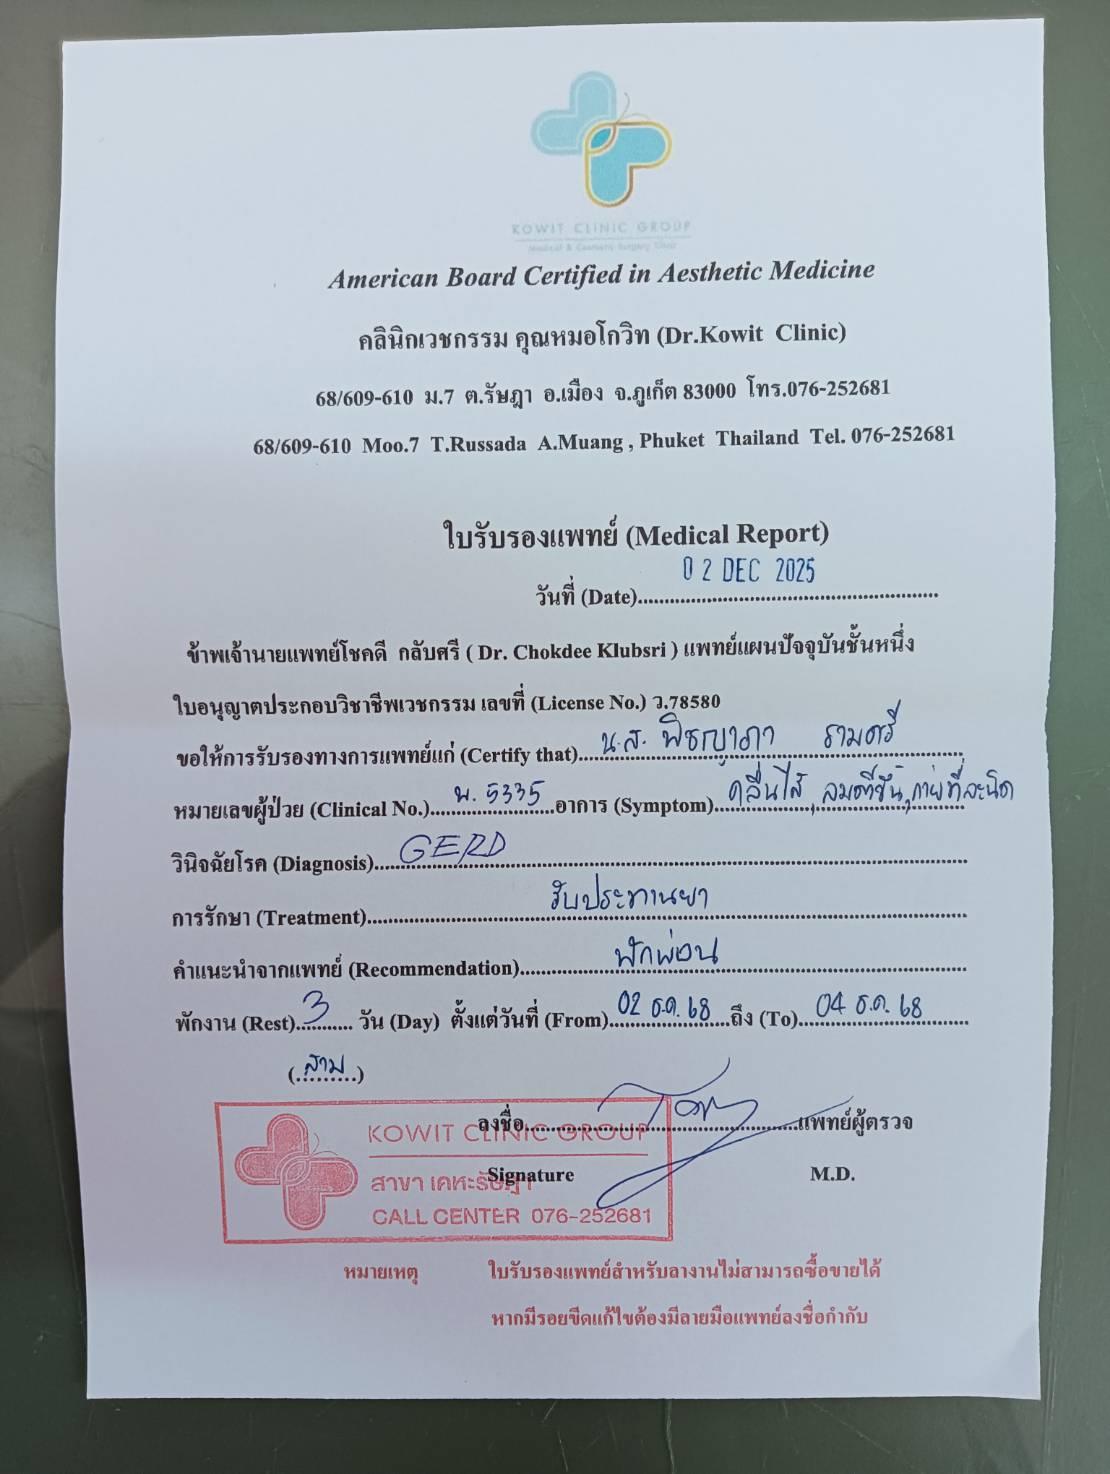 KOWIT CLINIC GROUP
Medical & Cosmetic Surgery Clinic
American Board Certified in Aesthetic Medicine
คลินิกเวชกรรม คุณหมอโกวิท (Dr.Kowit Clinic)
68/609-610 ม.7 ต.รัษฎา อ.เมือง จ.ภูเก็ต 83000 โทร.076-252681
68/609-610 Moo.7 T.Russada A.Muang , Phuket Thailand Tel. 076-252681
ใบรับรองแพทย์ (Medical Report)
วันที่ (Date) 02 DEC 2025
ข้าพเจ้านายแพทย์โชคดี กลับศรี ( Dr. Chokdee Klubsri ) แพทย์แผนปัจจุบันชั้นหนึ่ง
ใบอนุญาตประกอบวิชาชีพเวชกรรม เลขที่ (License No.) ว.78580
ขอให้การรับรองทางการแพทย์แก่ (Certify that) น.ส. พิชญาภา รามศรี
หมายเลขผู้ป่วย (Clinical No.) พ. 5335 อาการ (Symptom) คลื่นไส้, ลมตีขึ้น,
วินิจฉัยโรค (Diagnosis) GERD
การรักษา (Treatment) รับประทานยา
คำแนะนำจากแพทย์ (Recommendation) พักผ่อน
พักงาน (Rest) 3 วัน (Day) ตั้งแต่วันที่ (From) 02 ธ.ค. 68 ถึง (To) 04 ธ.ค. 68
(สาม)
ลงชื่อ แพทย์ผู้ตรวจ
Signature M.D.
KOWIT CLINIC GROUP
สาขา เคหะรัษฎา
CALL CENTER 076-252681
หมายเหตุ ใบรับรองแพทย์สำหรับลางานไม่สามารถซื้อขายได้
หากมีรอยขีดแก้ไขต้องมีลายมือแพทย์ลงชื่อกำกับ